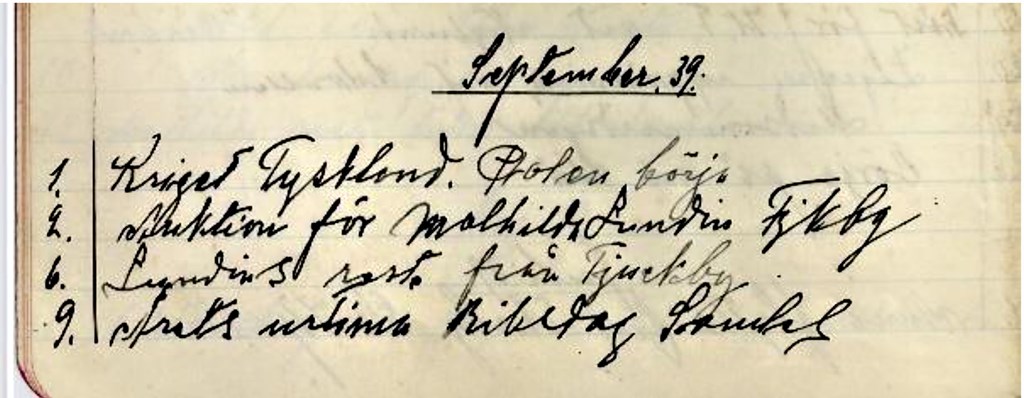 September. 39.
1. Kriget Tyskland. Polen börja
2. Auktion för Mathilda Lundin Tjkby
6. Lundins reste från Tjuckby
9. Årets urtima Riksdag